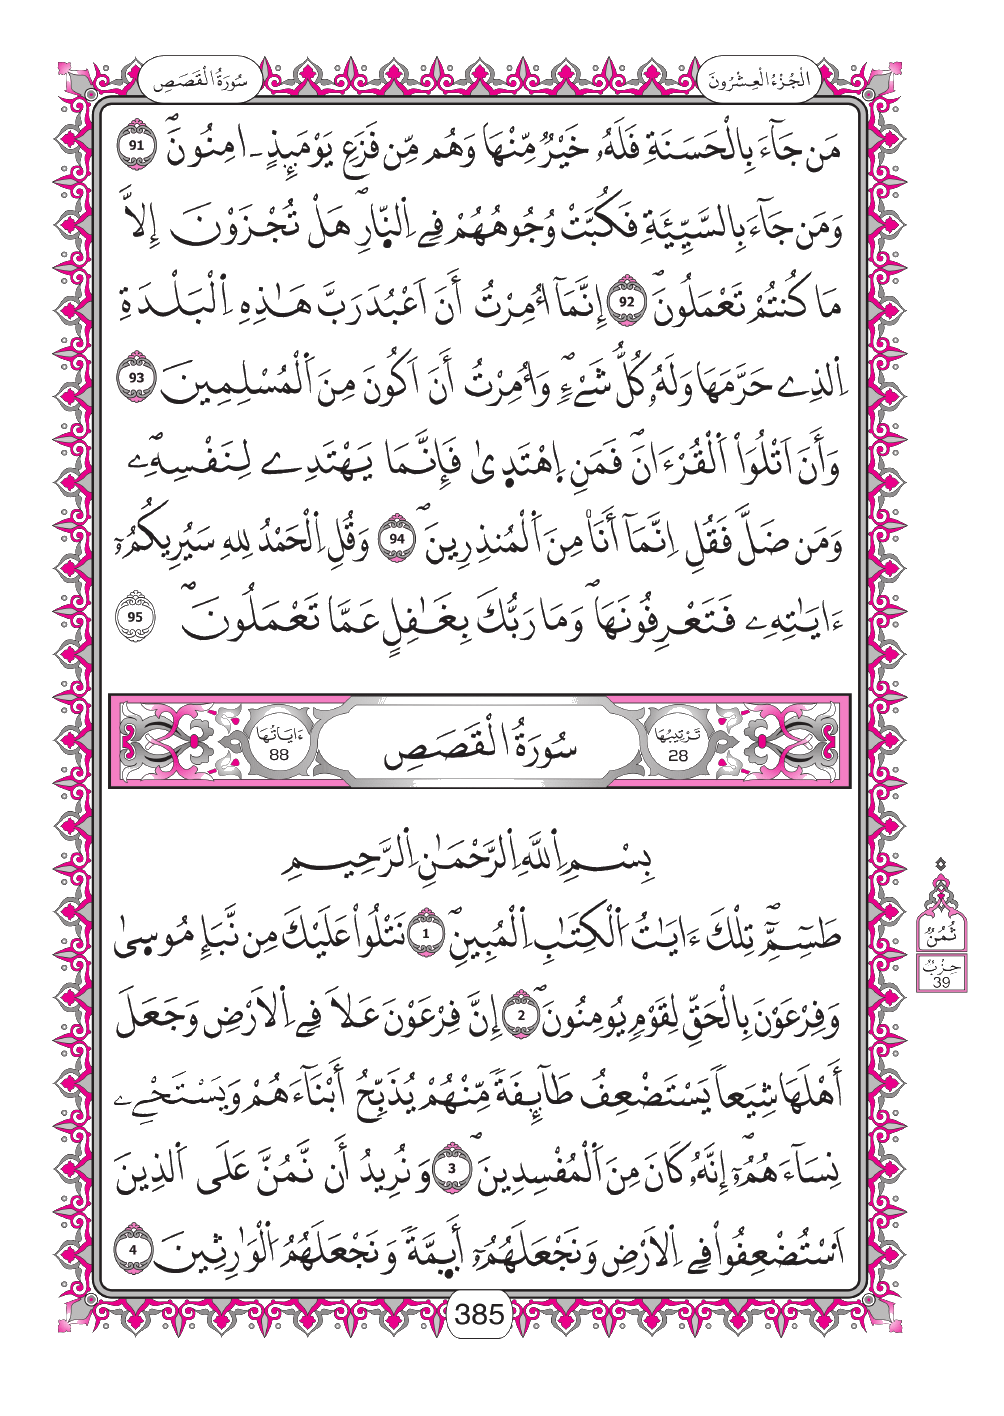 الْجُزْءُ الْعِشْرُونَ
سُورَةُ الْقَصَصِ
مَن جَآءَ بِالْحَسَنَةِ فَلَهُۥ خَيْرٌ مِّنْهَا وَهُم مِّن فَزَعِ يَوْمَئِذٍ ـ امِنُونَۖ 91
وَمَن جَآءَ بِالسَّيِّئَةِ فَكُبَّتْ وُجُوهُهُمْ فِے اِ۬لنّ۪ارِۖ هَلْ تُجْزَوْنَ إِلَّا
مَا كُنتُمْ تَعْمَلُونَۖ 92 إِنَّمَآ أُمِرْتُ أَنَ اَعْبُدَ رَبَّ هَـٰذِهِ اِ۬لْبَلْدَةِ
اِ۬لذِے حَرَّمَهَا وَلَهُۥ كُلُّ شَےْءٍۖ وَأُمِرْتُ أَنَ اَكُونَ مِنَ اَ۬لْمُسْلِمِينَ 93
وَأَنَ اَتْلُوَاْ اَ۬لْقُرْءَانَۖ فَمَنِ اِ۪هْتَد۪ىٰ فَإِنَّمَا يَهْتَدِے لِنَفْسِهِۦۖ
وَمَن ضَلَّ فَقُلِ اِنَّمَآ أَنَاْ مِنَ اَ۬لْمُنذِرِينَۖ 94 وَقُلِ اِ۬لْحَمْدُ لِلهِ سَيُرِيكُمُۥٓ
ءَايَـٰتِهِۦ فَتَعْرِفُونَهَاۖ وَمَا رَبُّكَ بِغَـٰفِلٍ عَمَّا تَعْمَلُونَۖ 95
تَرْتِيبُهَا 28
سُورَةُ الْقَصَصِ
ءَايَاتُهَا 88
بِسْمِ اِ۬للَّهِ اِ۬لرَّحْمَـٰنِ اِ۬لرَّحِيمِ
طَسِٓمِّٓۖ تِلْكَ ءَايَـٰتُ اُ۬لْكِتَـٰبِ اِ۬لْمُبِينِۖ 1 نَتْلُواْ عَلَيْكَ مِن نَّبَإِ مُوس۪ىٰ
وَفِرْعَوْنَ بِالْحَقِّ لِقَوْمٍ يُومِنُونَۖ 2 إِنَّ فِرْعَوْنَ عَلَا فِے اِ۬لَارْضِ وَجَعَلَ
أَهْلَهَا شِيَعاً يَسْتَضْعِفُ طَآئِفَةً مِّنْهُمْ يُذَبِّحُ أَبْنَآءَهُمْ وَيَسْتَحْےِۦ
نِسَآءَهُمُۥٓۖ إِنَّهُۥ كَانَ مِنَ اَ۬لْمُفْسِدِينَۖ 3 وَنُرِيدُ أَن نَّمُنَّ عَلَى اَ۬لذِينَ
اَ۟سْتُضْعِفُواْ فِے اِ۬لَارْضِ وَنَجْعَلَهُمُۥٓ أَي۪مَّةً وَنَجْعَلَهُمُ اُ۬لْوَٰرِثِينَ 4
ثُمُنٌ
حِزْبٌ
39
385